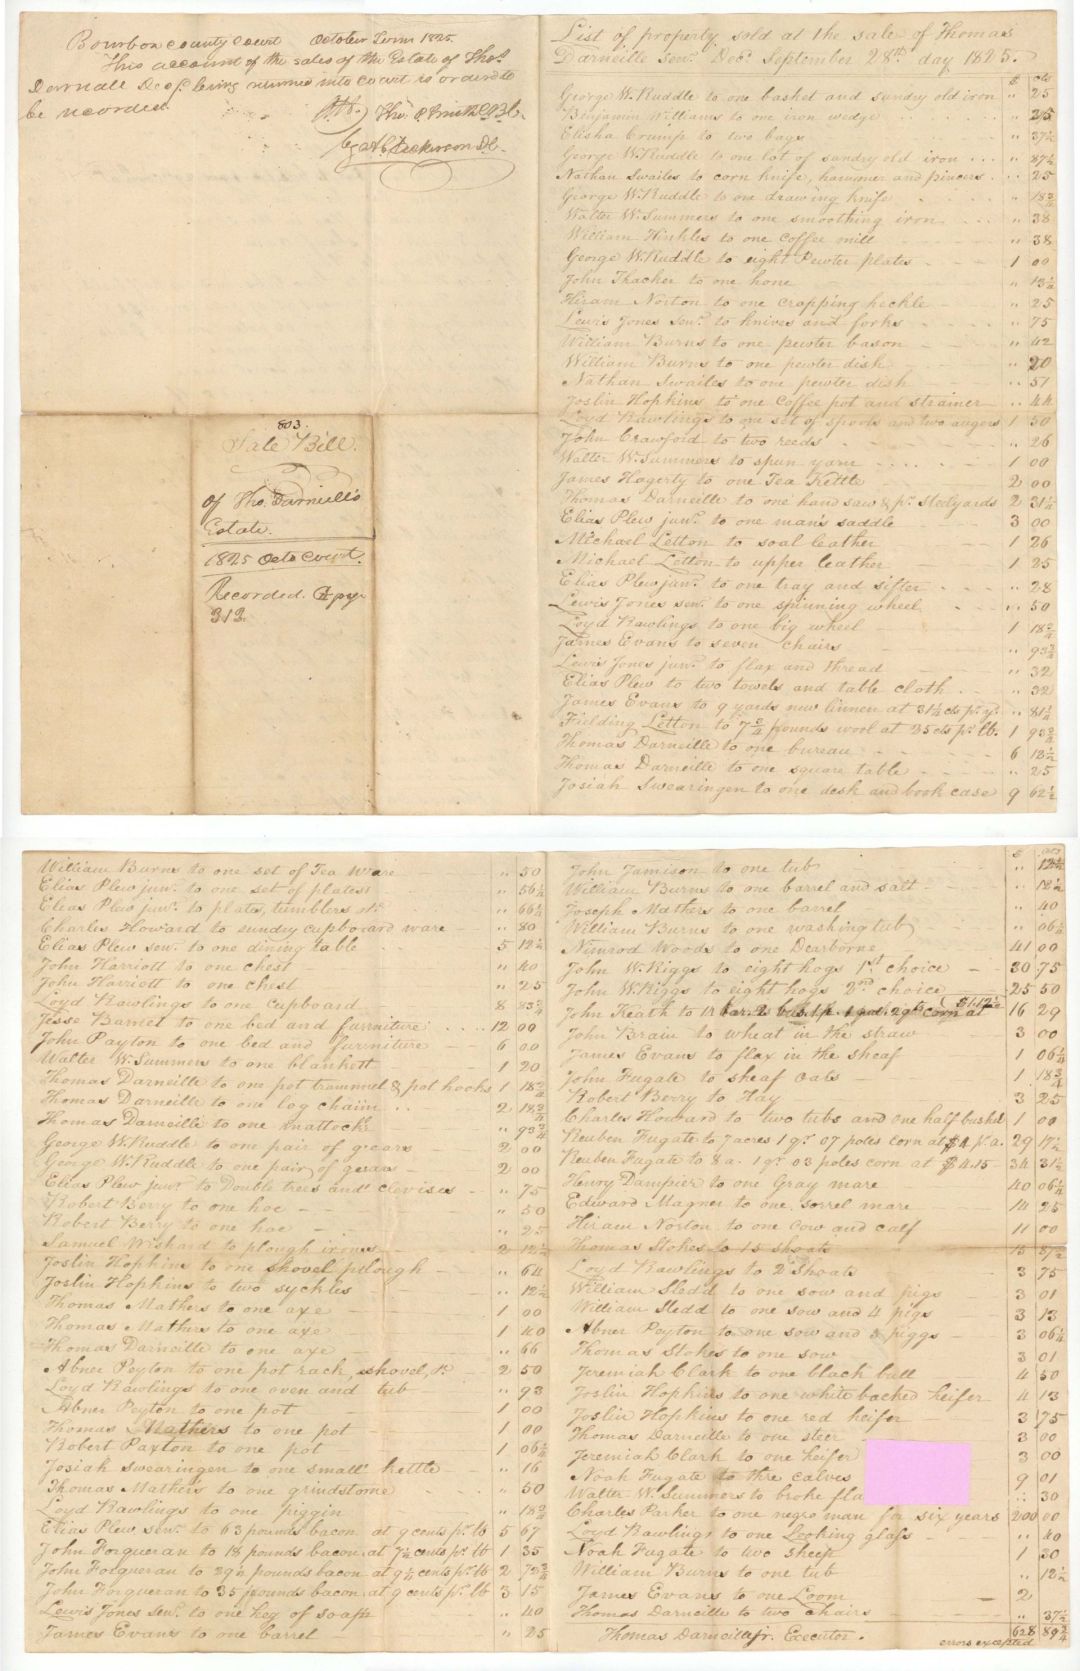 Bourbon county Court October Term 1825
This account of the sales of the Estate of Thos.
Darnall Decd. being returned into court is ordered to
be recorded.
Att. Tho. P Smith CBC.
803.
Sale Bill.
Of Tho. Darneille's
Estate.
1825 Octo Court.
Recorded. page
313
List of property sold at the sale of Thomas
Darneille senr. Decd. September 28th day 1825.
$ cts
George W. Ruddle to one basket and sundry old iron " 25
Benjamin Williams to one iron wedge " 25
Elisha Crump to two bags " 37½
George W. Ruddle to one lot of sundry old iron " 87½
Nathan Swailes to corn knife, hammer and pincers " 25
George W. Ruddle to one drawing knife " 18¾
Walter W. Summers to one smoothing iron " 38
William Hinkles to one coffee mill " 38
George W. Ruddle to eight Pewter plates 1 00
John Thacker to one hone " 13½
Hiram Norton to one cropping heckle " 25
Lewis Jones senr. to knives and forks " 75
William Burns to one pewter bason " 42
William Burns to one pewter dish " 20
Nathan Swailes to one pewter dish " 51
Joslin Hopkins to one Coffee pot and strainer " 44
Loyd Rawlings to one set of spools and two augers 1 50
John Crawford to two reeds " 26
Walter W. Summers to spun yarn 1 00
James Hagerty to one Tea Kettle 2 00
Thomas Darneille to one hand saw & pr. steelyards 2 31¼
Elias Plew junr. to one man's saddle 3 00
Michael Letton to soal leather 1 26
Michael Letton to upper leather 1 25
Elias Plew junr. to one tray and sifter " 28
Lewis Jones senr. to one spinning wheel " 50
Loyd Rawlings to one big wheel 1 18¾
James Evans to seven chairs " 93¾
Lewis Jones junr. to flax and thread " 32
Elias Plew to two towels and table cloth " 32
James Evans to 9 yards new linnen at 31¼ cts pr. yd. " 81¼
Fielding Letton to 7¾ pounds wool at 25 cts pr. lb. 1 93¾
Thomas Darneille to one bureau 6 12½
Thomas Darneille to one square table " 25
Josiah Swearingen to one desk and book case 9 62½
William Burns to one set of Tea Ware " 50
Elias Plew junr. to one set of plates " 56¼
Elias Plew junr. to plates, tumblers &c. " 66¼
Charles Howard to sundry cupboard ware " 80
Elias Plew senr. to one dining table 5 12½
John Harriott to one chest " 40
John Harriott to one chest " 25
Loyd Rawlings to one Cupboard 8 33¾
Jesse Barnet to one bed and furniture 12 00
John Payton to one bed and furniture 6 00
Walter W. Summers to one blankett 1 20
Thomas Darneille to one pot trammel & pot hooks 1 18¾
Thomas Darneille to one log chain 2 18¾
Thomas Darneille to one mattock " 93¾
George W. Ruddle to one pair of gears 2 00
George W. Ruddle to one pair of gears 2 00
Elias Plew junr. to Double trees and clevises " 75
Robert Berry to one hoe " 50
Robert Berry to one hoe " 25
Samuel Wiskard to plough irons 2 12½
Joslin Hopkins to one shovel plough " 64
Joslin Hopkins to two syckles " 12½
Thomas Mathers to one axe 1 00
Thomas Mathers to one axe 1 40
Thomas Darneille to one axe " 66
Abner Peyton to one pot rack, shovel, &c 2 50
Loyd Rawlings to one oven and tub " 93
Abner Peyton to one pot 1 00
Thomas Mathers to one pot 1 00
Robert Payton to one pot 1 06¼
Josiah Swearingen to one small kettle " 16
Thomas Mathers to one grindstone " 50
Loyd Rawlings to one piggin " 18¾
Elias Plew senr. to 63 pounds bacon at 9 cents pr. lb 5 67
John Forqueran to 18 pounds bacon at 7½ cents pr. lb 1 35
John Forqueran to 29½ pounds bacon at 9¼ cents pr. lb 2 72¾
John Forqueran to 35 pounds bacon at 9 cents pr. lb 3 15
Lewis Jones senr. to one keg of soap " 40
James Evans to one barrel " 25
$ cts
John Jamison to one tub " 12½
William Burns to one barrel and salt " 12½
Joseph Mathers to one barrel " 40
William Burns to one washing tub " 06¼
Nimrod Woods to one Dearborne 41 00
John W. Riggs to eight hogs 1st choice 30 75
John W. Riggs to eight hogs 2nd choice 25 50
John Keath to 11 bar. 2 bus. 1 p. 1 gal. 2 qts corn at $1.12½ 16 29
John Brain to wheat in the straw 3 00
James Evans to flax in the sheaf 1 06¼
John Fugate to sheaf oats 1 18¾
Robert Berry to Hay 3 25
Charles Howard to two tubs and one half bushel 1 00
Reuben Fugate to 7 acres 1 qr. 07 poles corn at $4 p. a. 29 17½
Reuben Fugate to 8 a. 1 qr. 03 poles corn at $4.15 34 31½
Henry Dampier to one Gray mare 40 06¼
Edward Magner to one sorrel mare 14 25
Hiram Norton to one Cow and calf 11 00
Thomas Stokes to 15 shoats 15 37½
Loyd Rawlings to 2d Shoats 3 75
William Sledd to one sow and pigs 3 01
William Sledd to one sow and 4 pigs 3 13
Abner Peyton to one sow and 3 piggs 3 06¼
Thomas Stokes to one sow 3 01
Jeremiah Clark to one black bull 4 50
Joslin Hopkins to one white backed heifer 4 13
Joslin Hopkins to one red heifer 3 75
Thomas Darneille to one steer 3 00
Jeremiah Clark to one heifer 3 00
Noah Fugate to thre calves 9 01
Walter W. Summers to broke fla " 30
Charles Parker to one negro man for six years 200 00
Loyd Rawlings to one Looking glass " 40
Noah Fugate to two sheep 1 30
William Burns to one tub " 12½
James Evans to one Loom 2
Thomas Darneille to two chairs " 37½
628 89¾
Thomas Darneille jr. Executor.
errors excepted